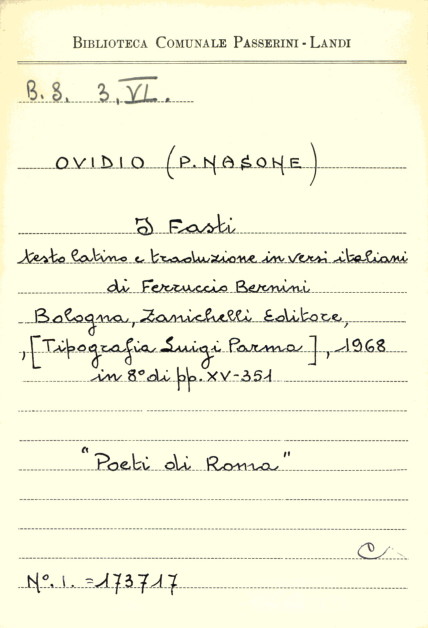 BIBLIOTECA COMUNALE PASSERINI-LANDI
B. S. 3. VI.
OVIDIO (P. NASONE)
I Fasti
testo latino e traduzione in versi italiani
di Ferruccio Bernini
Bologna, Zanichelli Editore,
,[Tipografia Luigi Parma], 1968
in 8° di pp. XV-351
"Poeti di Roma"
C
N°. I. =173717